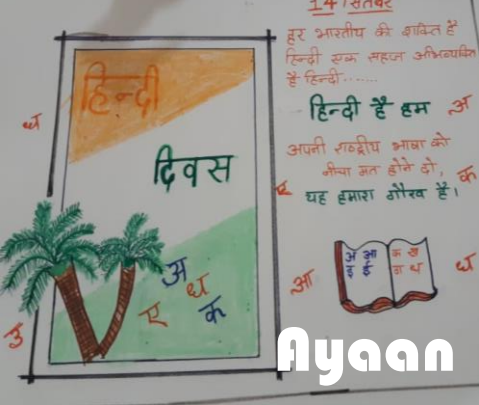 14 सितंबर
हर भारतीय की शक्ति है
हिन्दी एक सहज अभिव्यक्ति
है हिन्दी.......
हिन्दी है हम
अ
अपनी राष्ट्रीय भाषा को
नीचा मत होने दो,
क
यह हमारा गौरव है।
ए
हिन्दी
दिवस
ध
अ
ए ध क
उ
आ
अ आ
इ ई
क ख
ग घ
ध
Ayaan